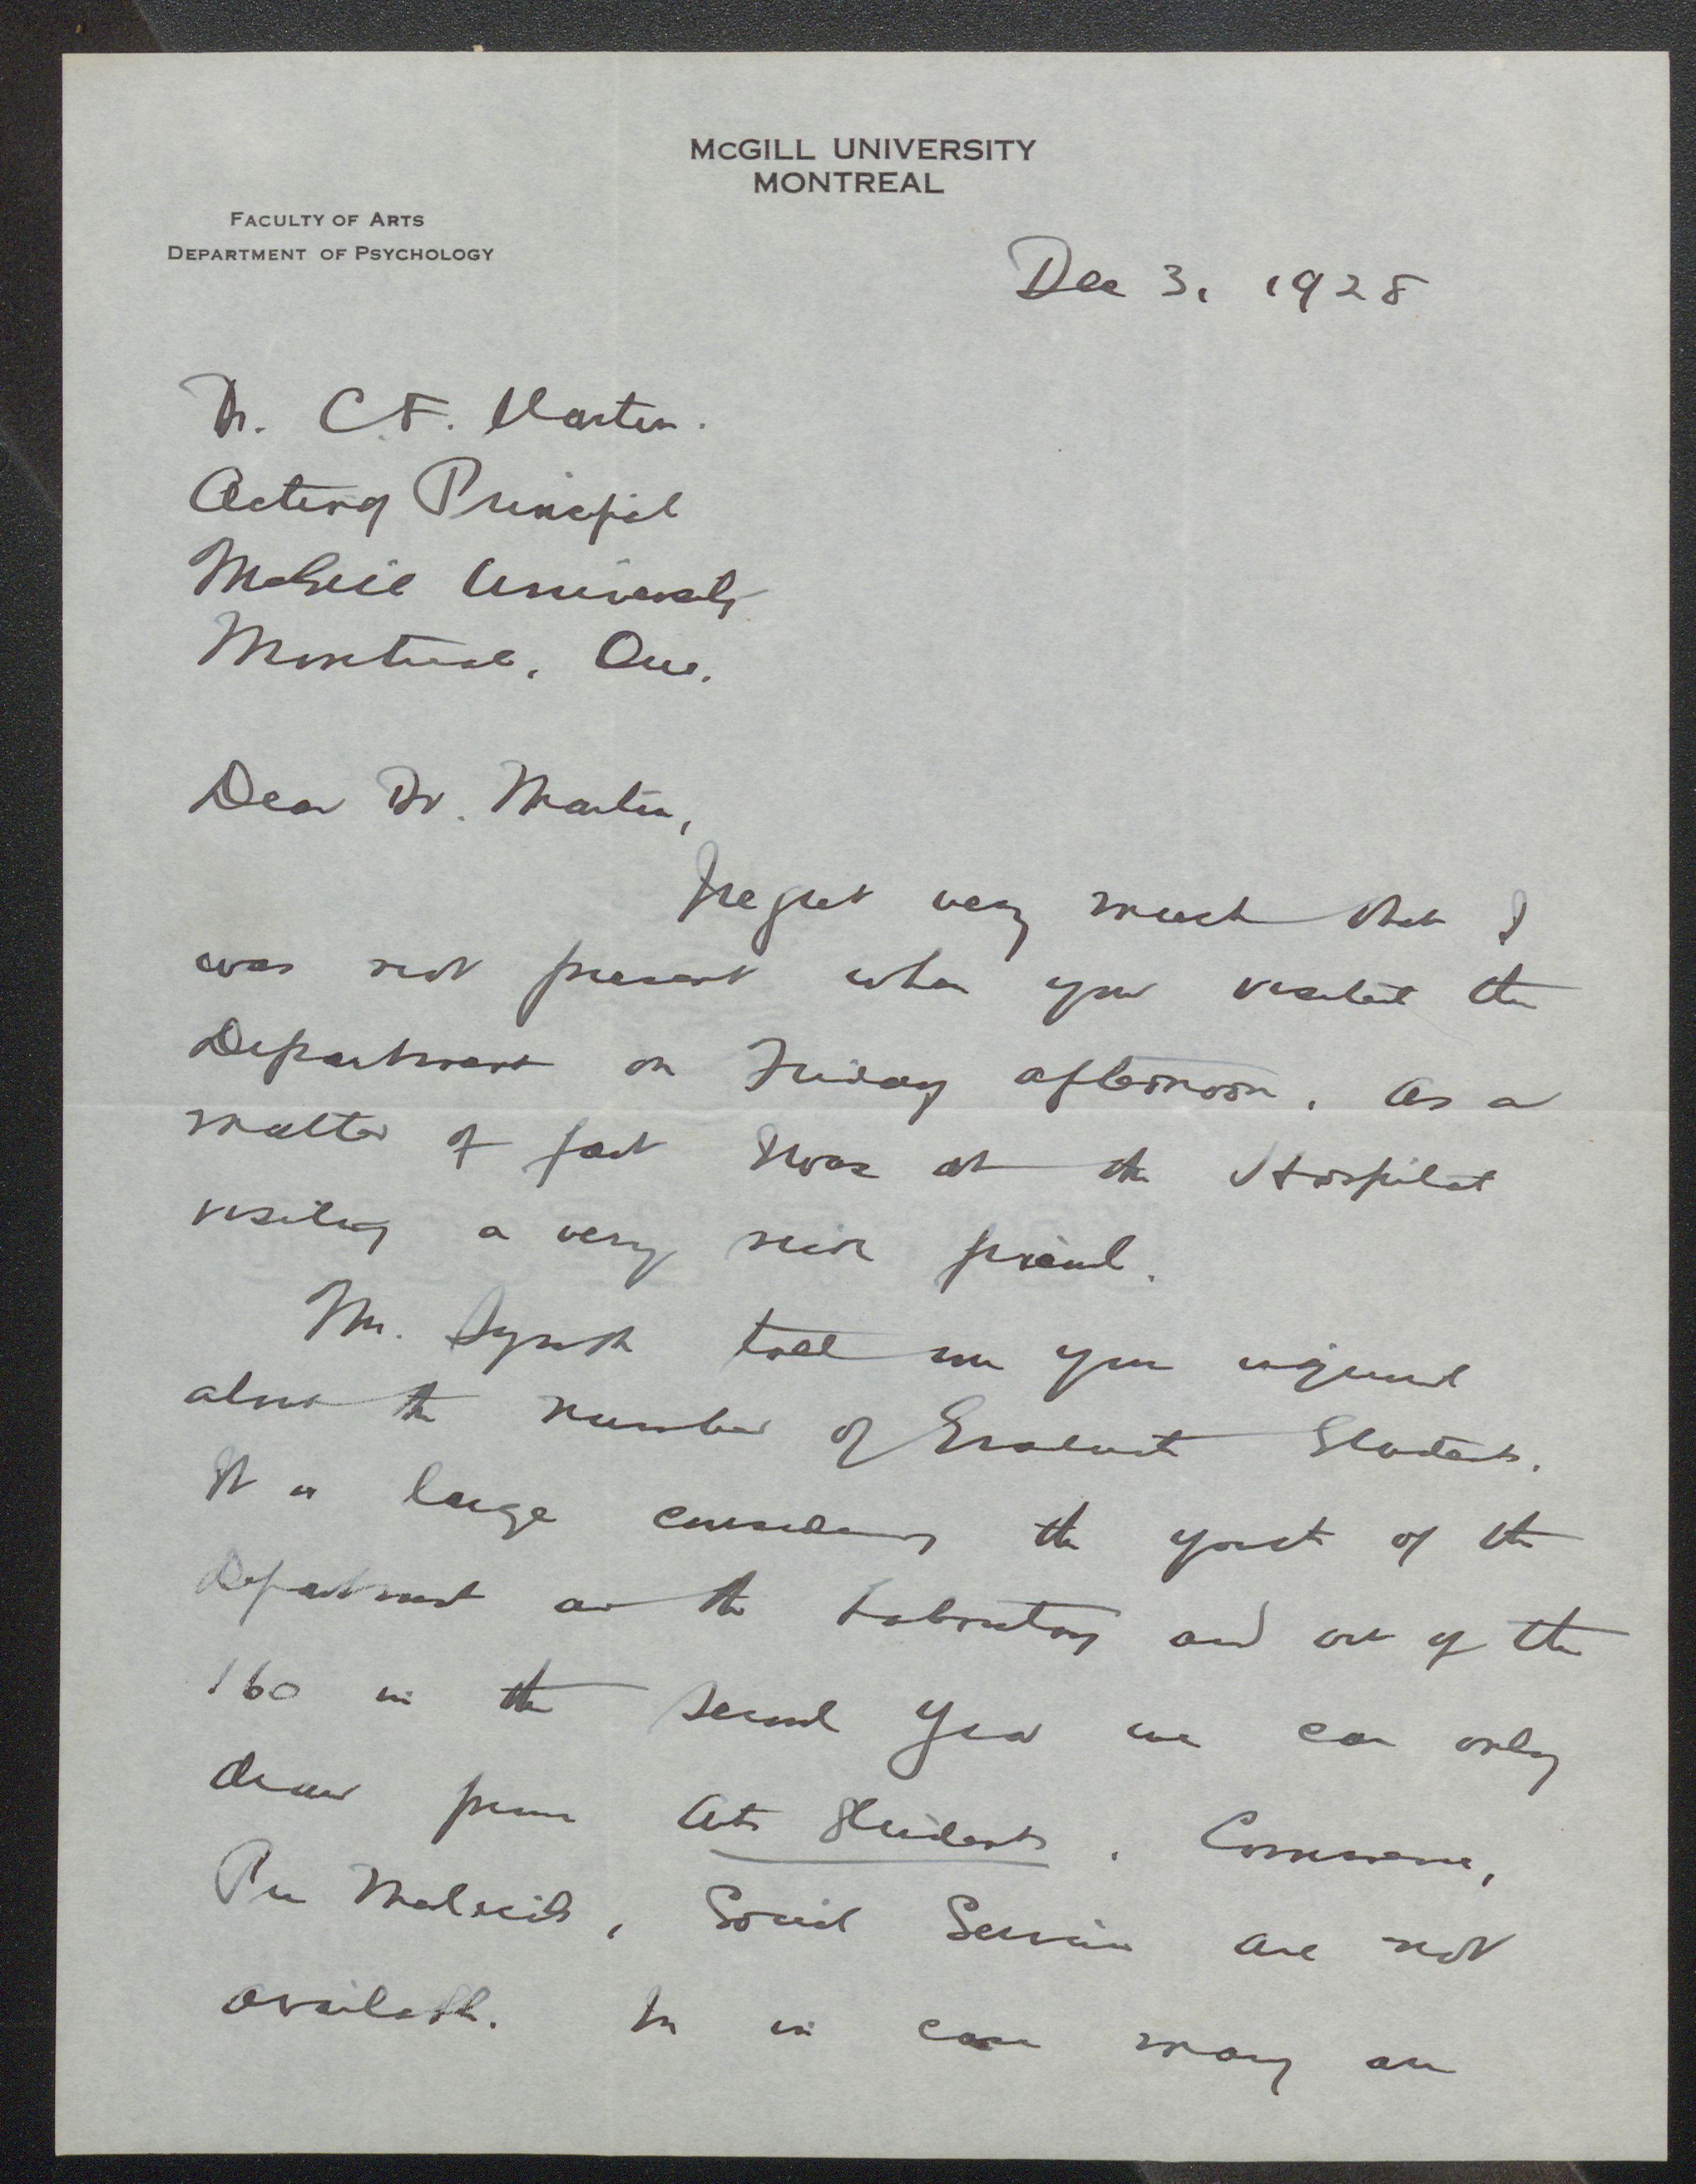 McGILL UNIVERSITY
MONTREAL
FACULTY OF ARTS
DEPARTMENT OF PSYCHOLOGY
Dec 3, 1928
Dr. C.F. Martin.
Acting Principal
McGill University
Montreal, Que.
Dear Dr. Martin,
I regret very much that I
was not present when you visited the
Department on Friday afternoon. As a
matter of fact I was at the Hospital
visiting a very sick friend.
Mr. told me you inquired
about the number of Graduate Students.
It is large considering the youth of the
Department and the Laboratory and out of the
160 in the second year we can only
draw from Arts Students. Commerce,
Pre Medicals, Social Service are not
available. in case many are